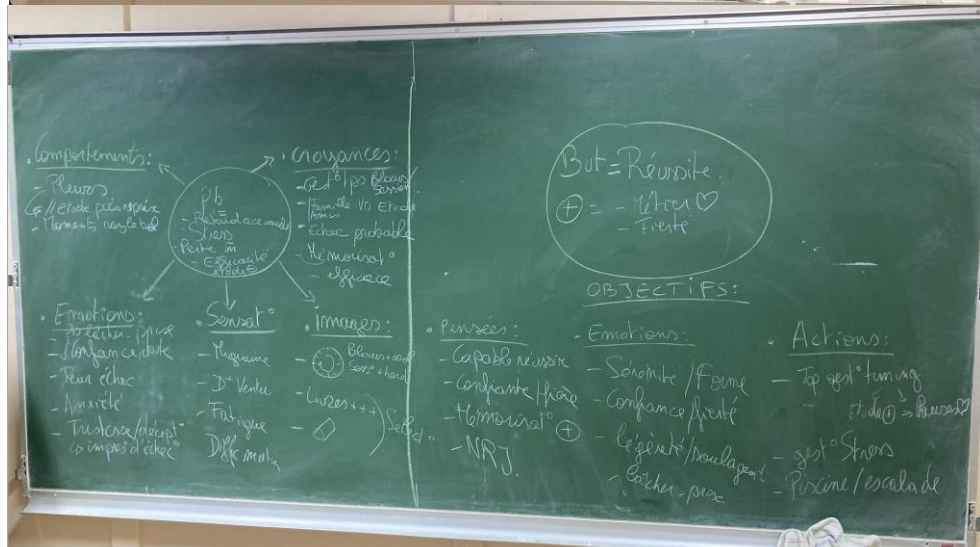 • Comportements:
- Pleurs
- Moments
pb
=
- Stress
- Perte
- Efficacité
• Croyances:
- Gest° tps Blocus
Session
- Famille VS Etude
Amis
- Echec probable
- Mémorisat°
- efficace
• Emotions:
- Confiance
- Peur échec
- Anxiété
- Tristesse/décept°
↳ impres° d'échec
• Sensat°
- Migraine
- D+ Ventre
- Fatigue
• Images:
- Blocus
- Livres +++
-
But = Réussite
⊕ = - Métier ♡
- Fierté
OBJECTIFS:
• Pensées:
- Capable réussir
- Confiante/fière
- Mémorisat° ⊕
- NRJ
Emotions:
- Sérénité/Forme
- Confiance/fierté
- légèreté/soulagent
- lâcher-prise
• Actions:
- Top gest° timing
↓
Etude ⊕ => Pauses ♡
- gest° Stress
- Piscine/escalade